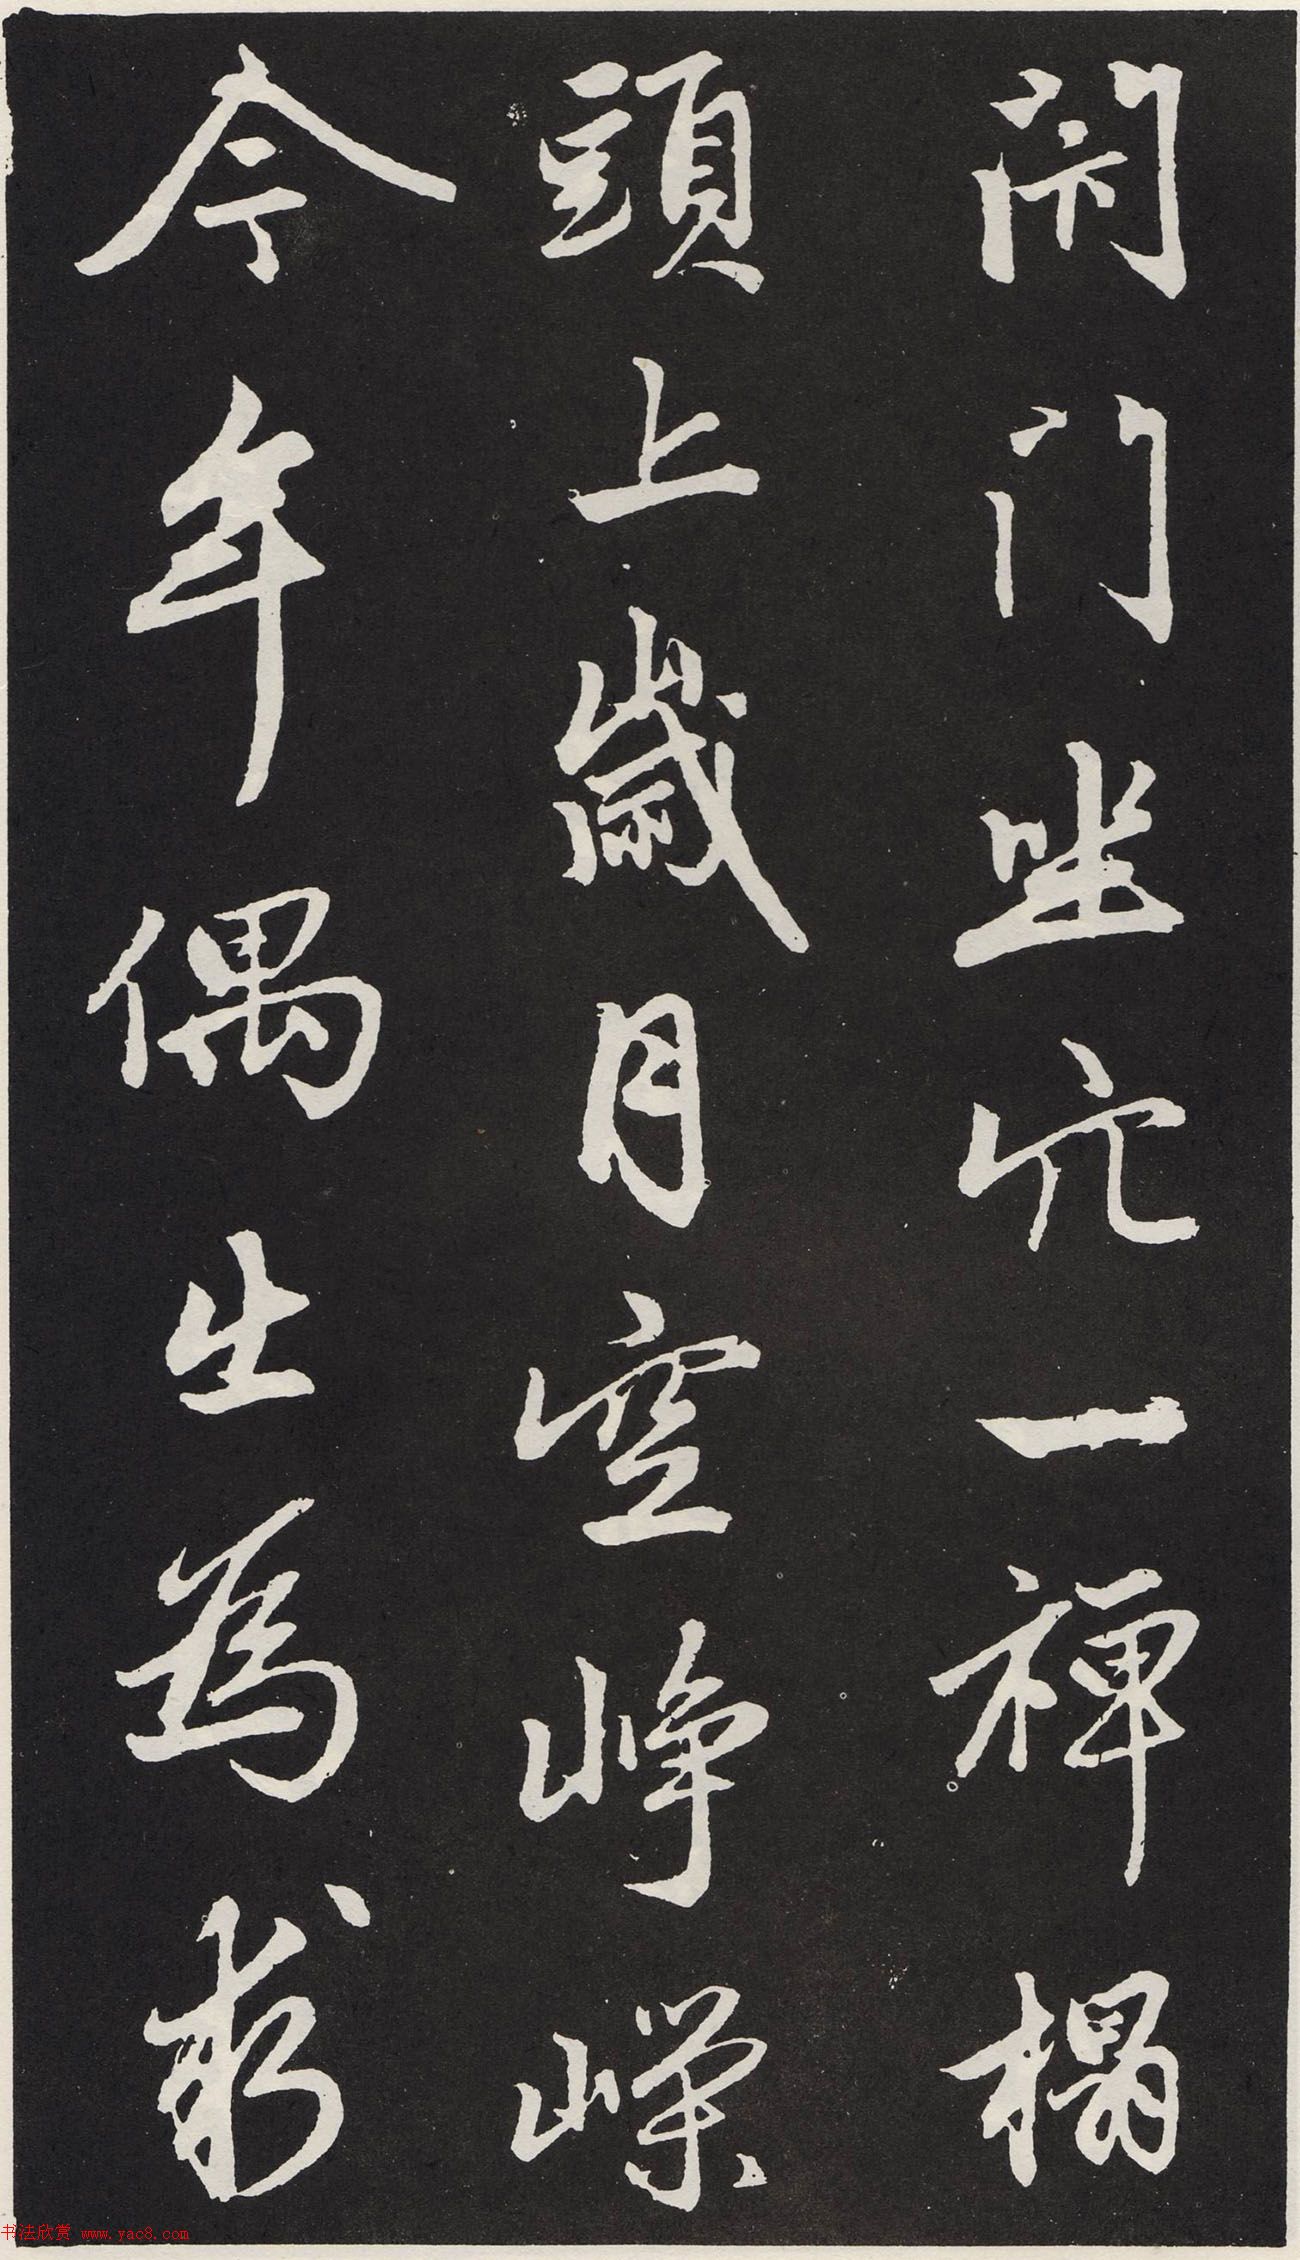 閉門坐穴一禪榻
頭上歲月空崢嶸
今年偶出為求
书法欣赏 www.yac8.com